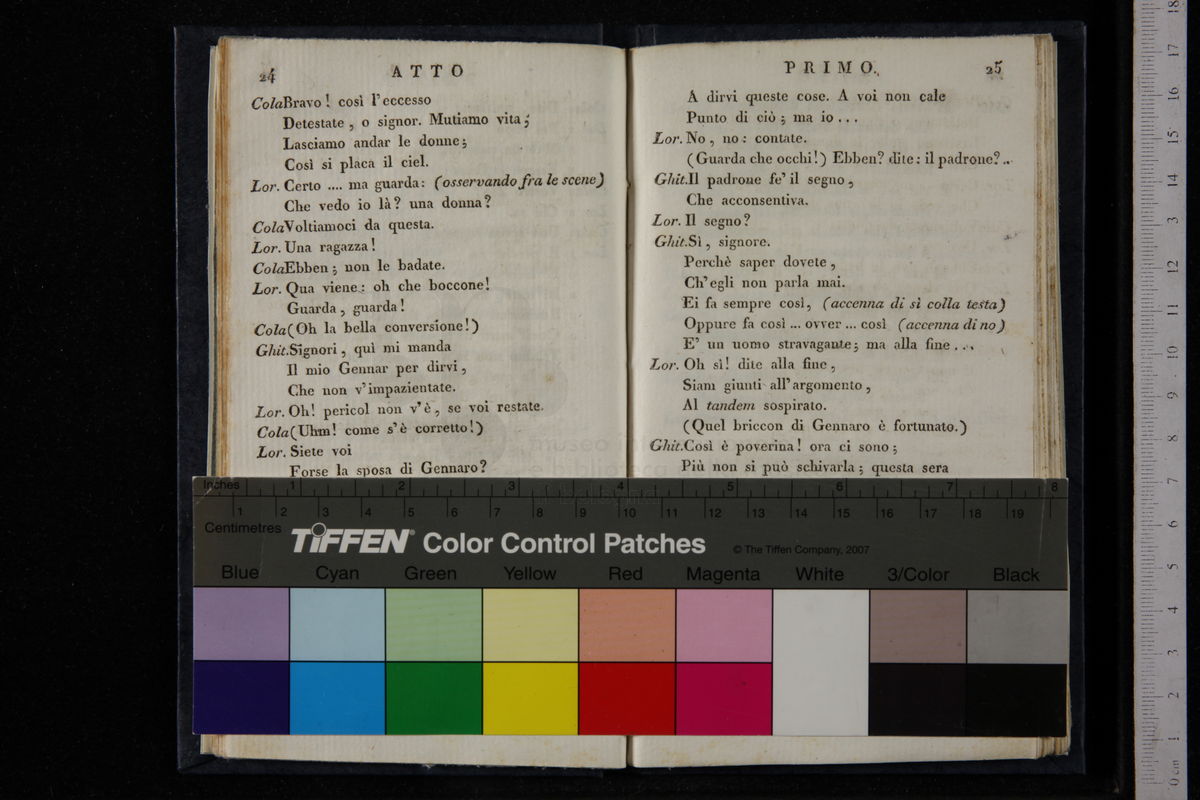 24 ATTO
Cola Bravo! così l'eccesso
Detestate, o signor. Mutiamo vita;
Lasciamo andar le donne;
Così si placa il ciel.
Lor. Certo .... ma guarda: (osservando fra le scene)
Che vedo io là? una donna?
Cola Voltiamoci da questa.
Lor. Una ragazza!
Cola Ebben; non le badate.
Lor. Qua viene: oh che boccone!
Guarda, guarda!
Cola (Oh la bella conversione!)
Ghit. Signori, quì mi manda
Il mio Gennar per dirvi,
Che non v'impazientate.
Lor. Oh! pericol non v'è, se voi restate.
Cola (Uhm! come s'è corretto!)
Lor. Siete voi
Forse la sposa di Gennaro?
PRIMO. 25
A dirvi queste cose. A voi non cale
Punto di ciò; ma io...
Lor. No, no: contate.
(Guarda che occhi!) Ebben? dite: il padrone?..
Ghit. Il padrone fe' il segno,
Che acconsentiva.
Lor. Il segno?
Ghit. Sì, signore.
Perchè saper dovete,
Ch'egli non parla mai.
Ei fa sempre così, (accenna di sì colla testa)
Oppure fa così ... ovver ... così (accenna di no)
E' un uomo stravagante; ma alla fine...
Lor. Oh sì! dite alla fine,
Siam giunti all'argomento,
Al tandem sospirato.
(Quel briccon di Gennaro è fortunato.)
Ghit. Così è poverina! ora ci sono;
Più non si può schivarla; questa sera
museo
e biblioteca
Inches 1 2 3 4 5 6 7 8
Centimetres 1 2 3 4 5 6 7 8 9 10 11 12 13 14 15 16 17 18 19
TIFFEN® Color Control Patches © The Tiffen Company, 2007
Blue Cyan Green Yellow Red Magenta White 3/Color Black
0 cm 1 2 3 4 5 6 7 8 9 10 11 12 13 14 15 16 17 18